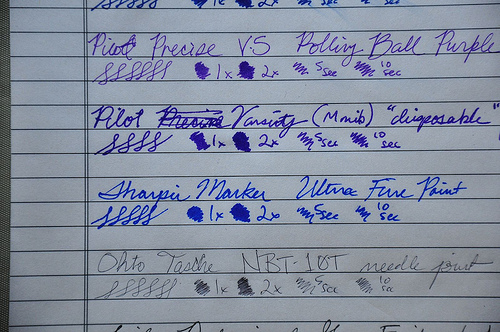 1x 2x 5sec sec
Pilot Precise V-5 Rolling Ball Purple
SSSSSS 1x 2x 5sec 10sec
Pilot Precise Varsity (M nib) "disposable"
SSSSS 1x 2x 5sec 10sec
Sharpie Marker Ultra Fine Point
SSSSS 1x 2x 5sec 10sec
Ohto Tasche NBT-10T needle point
SSSSSS 1x 2x 5sec 10sec